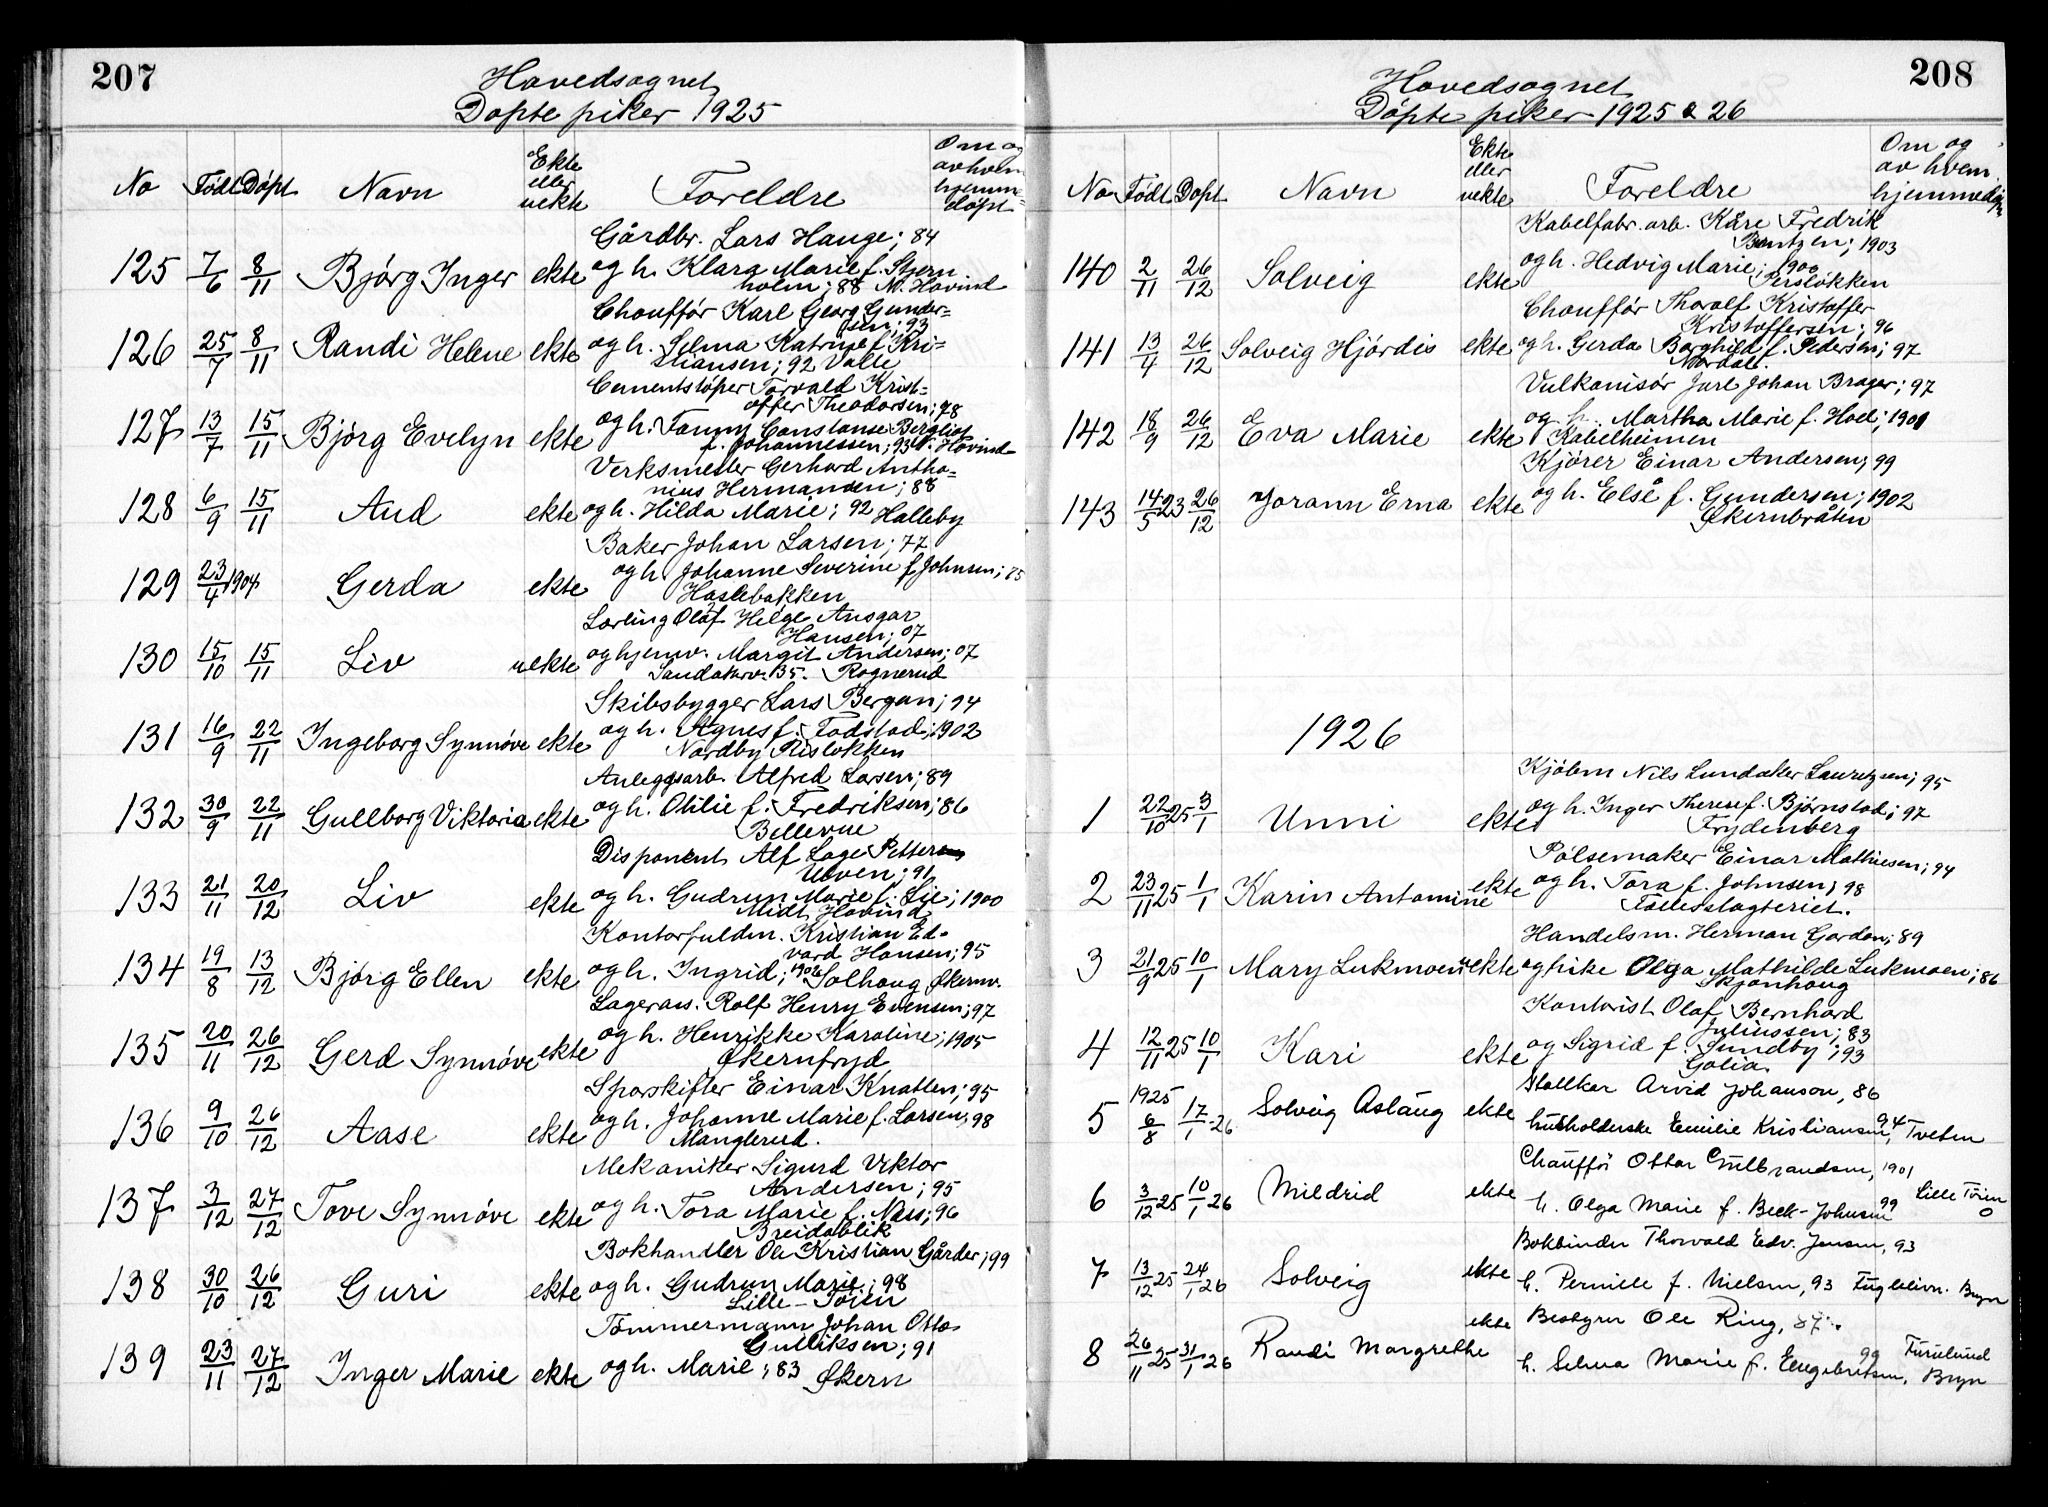 207
Hovedsognet
Døpte piker 1925
No Født Døpt Navn Ekte eller uekte Foreldre Om og av hvem hjemmedøpt
Gårdbr. Lars Hauge; 84
125 7/6 8/11 Bjørg Inger ekte og h. Klara Marie f. Stjern
holm; 88 N. Hovind
Chauffør Karl Georg Gunder=
sen; 93
126 25/7 8/11 Randi Helene ekte og h. Selma Katrine f. Kri-
stiansen; 92 Valle
Cementstøper Torvald Krist=
offer Theodorsen; 78
127 13/7 15/11 Bjørg Evelyn ekte og h. Fanny Constanse Bergliot
f. Johannessen; 93 N. Hovind
Verksmester Gerhard Antho=
nius Hermansen; 88
128 6/9 15/11 Aud ekte og h. Hilda Marie; 92 Halleby
Baker Johan Larsen; 77
129 23/4 1904 Gerda ekte og h. Johanne Severine f. Johnsen; 75
Haslebakken
Lærling Olaf Helge Ansgar
Hansen; 07
130 15/10 15/11 Liv uekte og hjemv. Margit Andersen; 07
Sandakerv. 35. Rognerud
Skibsbygger Lars Bergan; 94
131 16/9 22/11 Ingeborg Synnøve ekte og h. Agnes f. Fodstad; 1902
Nordby Risløkken
Anleggsarb. Alfred Larsen; 89
132 30/9 22/11 Gullborg Viktoria ekte og h. Otilie f. Fredriksen; 86
Bellevue
Disponent Alf Lage Petter
Ulven; 91
133 21/11 20/12 Liv ekte og h. Gudrun Marie f. Lie; 1900
Midt Hovind
Kontorfuldm. Kristian Ed=
vard Hansen; 95
134 19/8 13/12 Bjørg Ellen ekte og h. Ingrid; 1902 Solhaug Økernv.
Lagerass. Rolf Henry Evensen; 97
135 20/11 26/12 Gerd Synnøve ekte og h. Henrikke Karoline; 1905
Økernfryd
Sporskifter Einar Knatten; 95
136 9/10 26/12 Aase ekte og h. Johanne Marie f. Larsen; 98
Manglerud.
Mekaniker Sigurd Viktor
Andersen; 95
137 3/12 27/12 Tove Synnøve ekte og h. Tora Marie f. Næss; 96
Breidablik
Bokhandler Ole Kristian Gårder; 99
138 30/10 26/12 Guri ekte og h. Gudrun Marie; 98
Lille-Tøien
Tømmermann Johan Otto
Gulliksen; 91
139 23/11 27/12 Inger Marie ekte og h. Marie; 83 Økern
208
Hovedsognet
Døpte piker 1925 & 26
No Født Døpt Navn Ekte eller uekte Foreldre Om og av hvem hjemmedøpt
Kabelfabr. arb. Kåre Fredrik
Berntzen; 1903
140 2/11 26/12 Solveig ekte og h. Hedvig Marie; 1900
Persløkken
Chauffør Thoralf Kristoffer
Kristoffersen; 96
141 13/4 26/12 Solveig Hjørdis ekte og h. Gerda Borghild f. Pedersen; 97
Nordal.
Vulkanisør Jarl Johan Brager; 97
142 18/9 26/12 Eva Marie ekte og h. Martha Marie f. Hoel; 1901
Kabelheimen
Kjører Einar Andersen; 99
143 14/5 23 26/12 Jorann Erna ekte og h. Else f. Gundersen; 1902
Økernbråten
1926
Kjøbm Nils Lundaker Lauritzen; 95
1 22/10 25 3/1 Unni ekte og h. Inger Therese f. Bjørnstad; 97
Frydenberg
Pølsemaker Einar Mathiesen; 94
2 23/11 25 1/1 Karin Antomine ekte og h. Tora f. Johnsen; 98
Fællesslagteriet.
Handelsm. Herman Gordon; 89
3 21/9 25 10/1 Mary Lukmoen uekte og pike Olga Mathilde Lukmoen; 86
Skjønhaug
Kontorist Olaf Bernhard
Juliussen; 83
4 12/11 25 10/1 Kari ekte og Sigrid f. Sundby; 93
Golia
Stallkar Arvid Johanson, 86
5 1925 6/8 17/1 26 Solveig Aslaug ekte husholderske Emilie Kristiansen, 94 Tveten
Chauffør Ottar Gulbrandsen, 1901
6 3/12 25 10/1 26 Mildrid ekte h. Olga Marie f. Beck-Johnsen 99 Lille Tøien
Bokbinder Thorvald Edv. Jensen, 93
7 13/12 25 24/1 26 Solveig ekte h. Pernille f. Nielsen, 93 Fuglelivn. Bryn
Bestyrer Ole Ring, 87
8 26/11 25 31/1 26 Randi Margrethe ekte h. Selma Marie f. Engebretsen, 99 Furulund Bryn